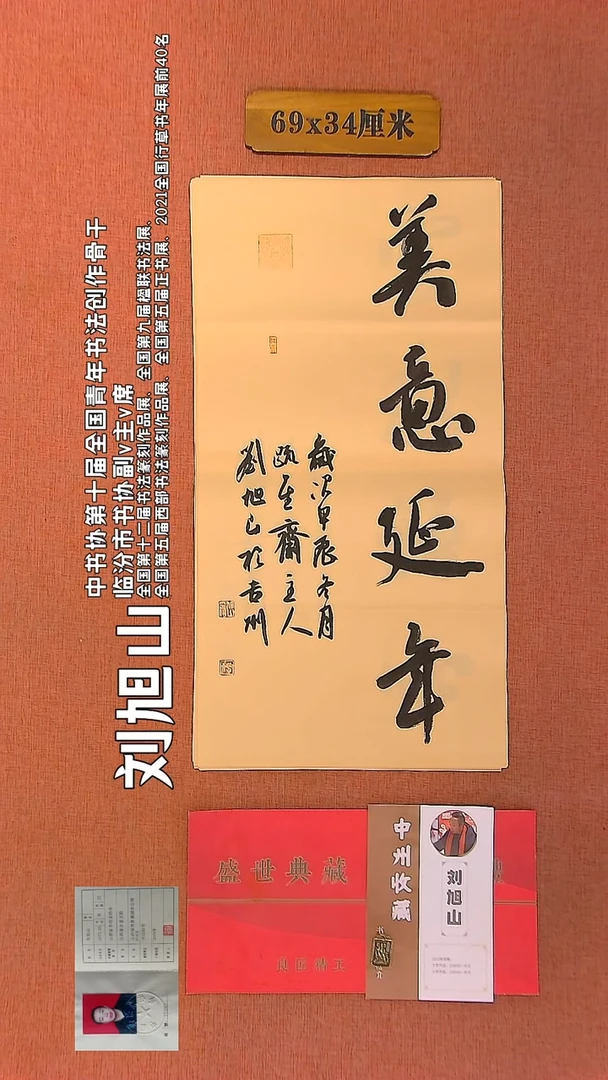 69x34厘米
美意延年
歲次甲辰冬月
頤至齋主人
劉旭山於古州
刘旭山
中书协第十届全国青年书法创作骨干
临汾市书协副v主v席
全国第十二届书法篆刻作品展、全国第九届楹联书法展、
全国第五届西部书法篆刻作品展、全国第五届正书展、2021全国行草书年展前40名
盛世典藏
良匠精工
中州收藏
刘旭山